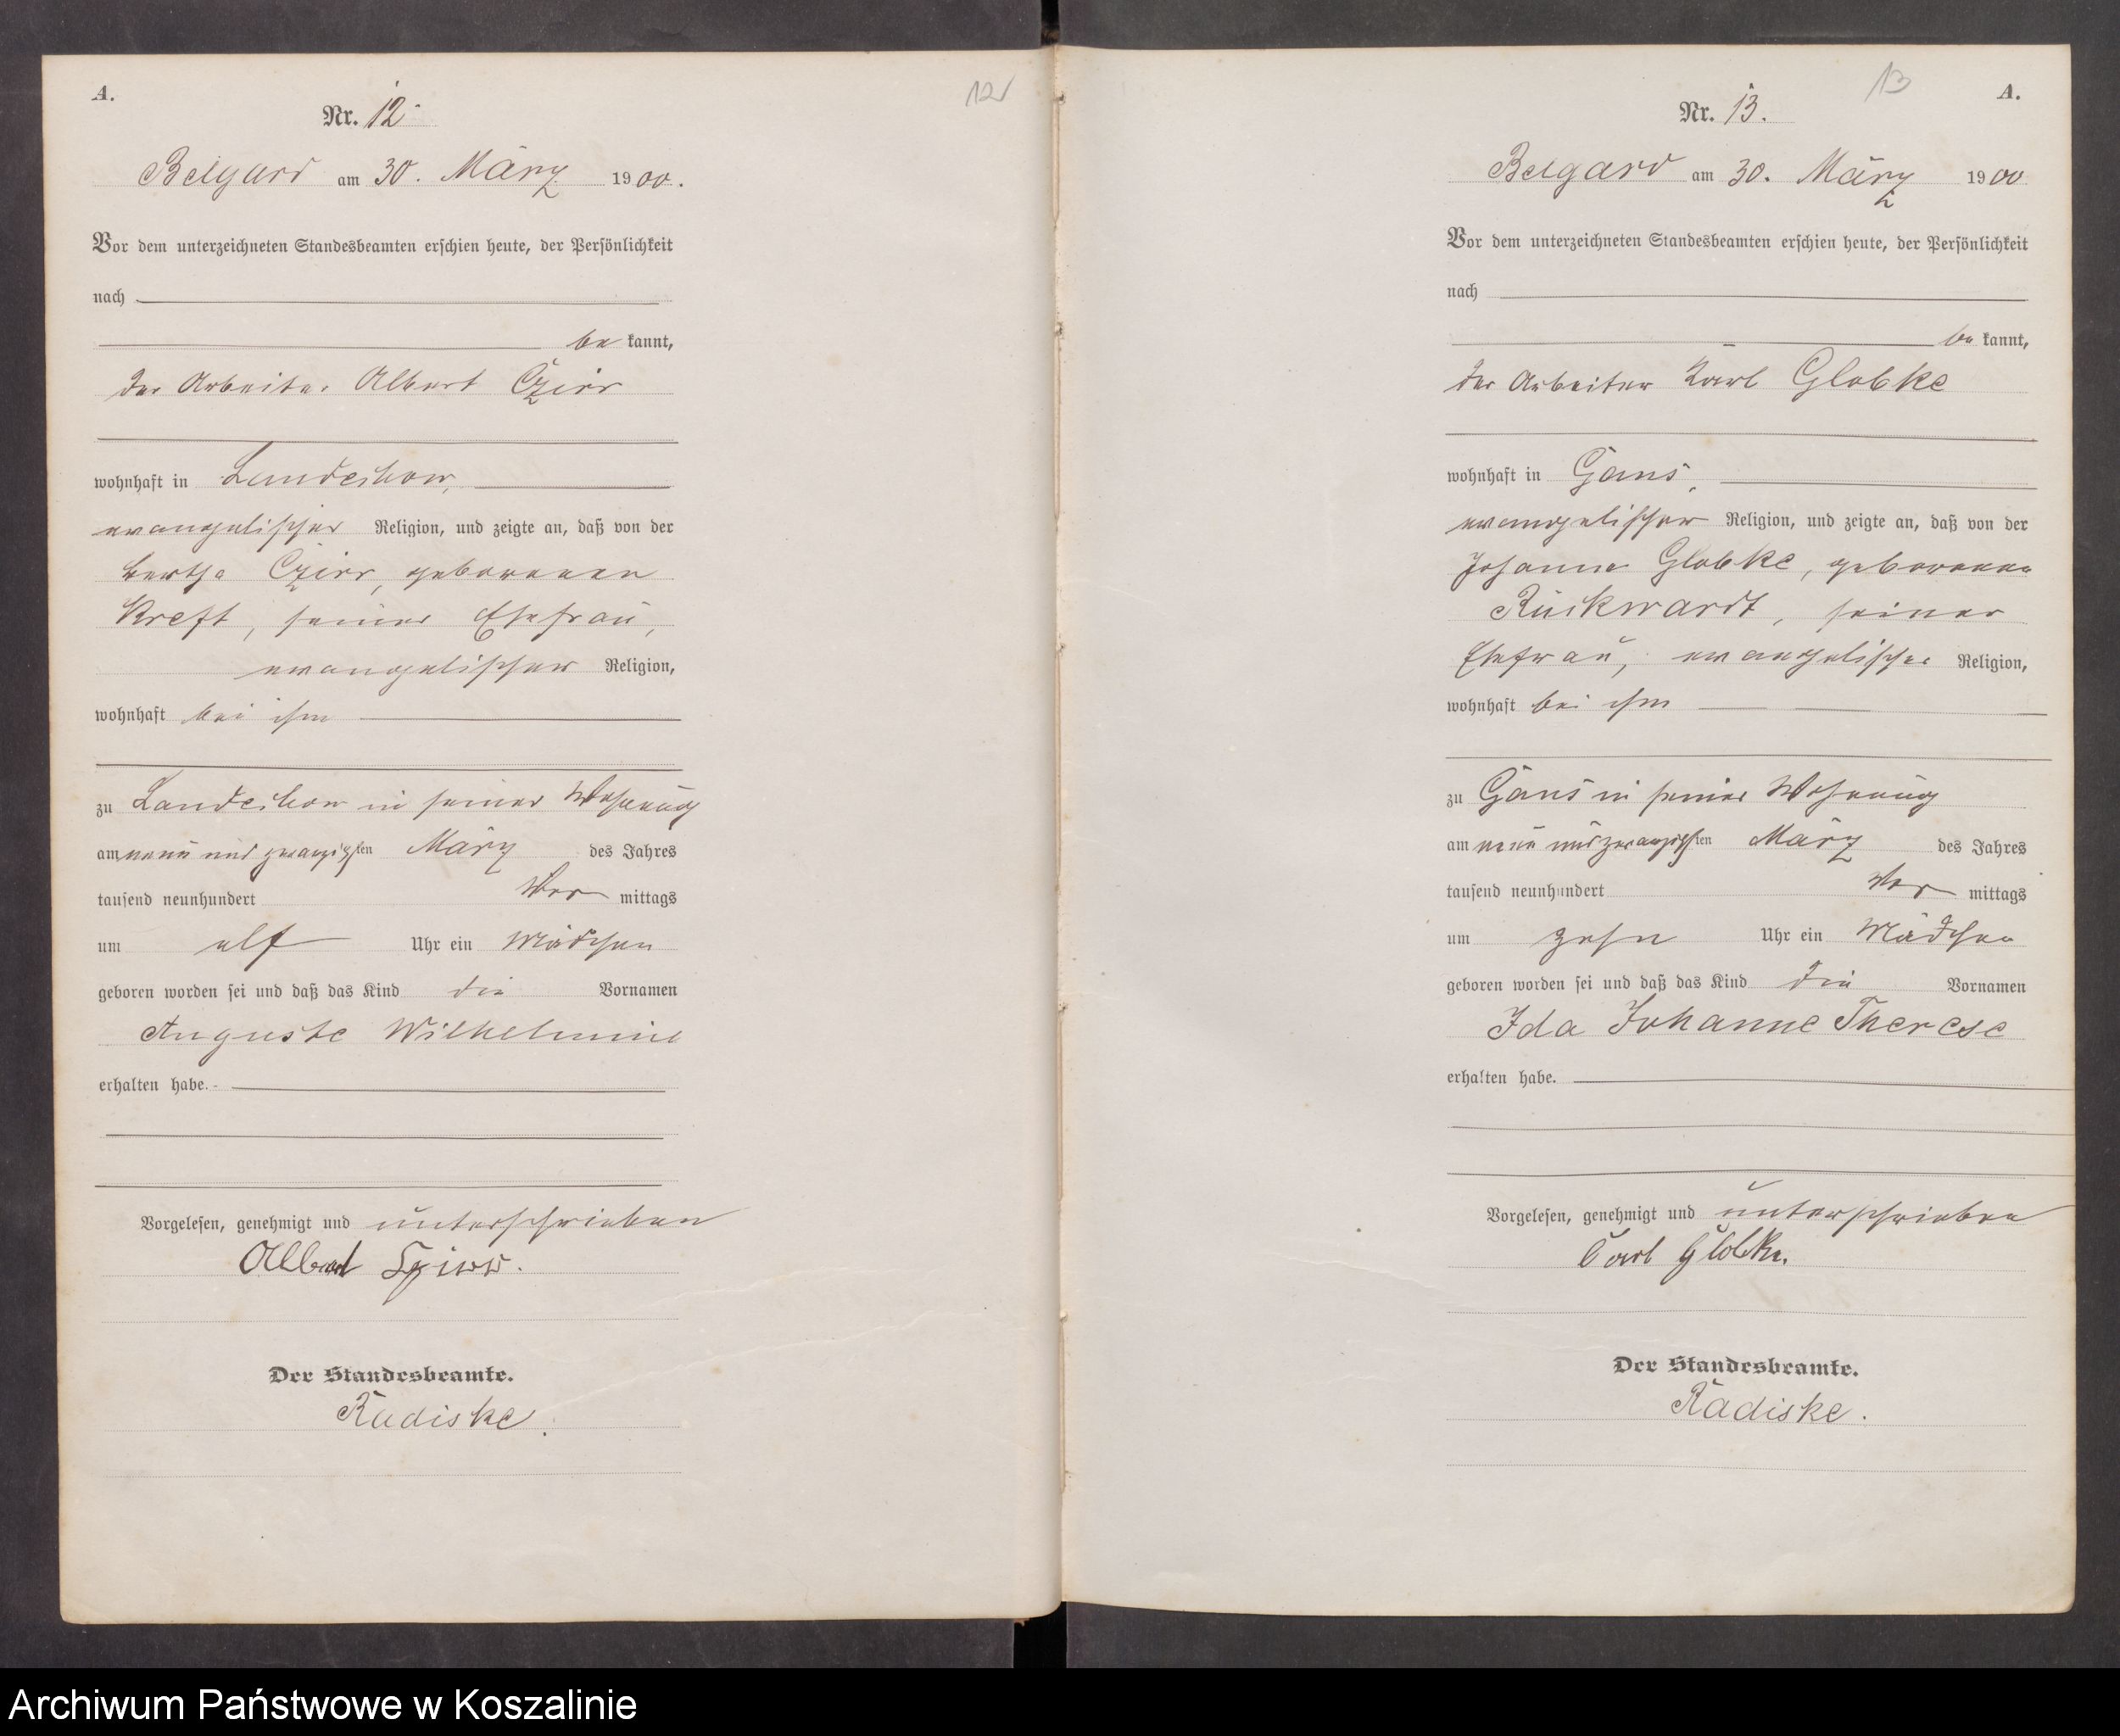 A.
12
Nr. 12
Belgard am 30. März 1900.
Vor dem unterzeichneten Standesbeamten erschien heute, der Persönlichkeit
nach
be kannt,
der Arbeiter Albert Czirr
wohnhaft in Landechow,
evangelischer Religion, und zeigte an, daß von der
Bertha Czirr, geborenen
Kreft, seiner Ehefrau,
evangelischer Religion,
wohnhaft bei ihm
zu Landechow in seiner Wohnung
am neun und zwanzigsten März des Jahres
tausend neunhundert Vor mittags
um elf Uhr ein Mädchen
geboren worden sei und daß das Kind die Vornamen
Auguste Wilhelmine
erhalten habe.
Vorgelesen, genehmigt und unterschrieben
Albert Czirr.
Der Standesbeamte.
Radiske.
13
A.
Nr. 13.
Belgard am 30. März 1900
Vor dem unterzeichneten Standesbeamten erschien heute, der Persönlichkeit
nach
be kannt,
der Arbeiter Karl Globke
wohnhaft in Gans,
evangelischer Religion, und zeigte an, daß von der
Johanne Globke, geborenen
Rückwardt, seiner
Ehefrau, evangelischer Religion,
wohnhaft bei ihm
zu Gans in seiner Wohnung
am neun und zwanzigsten März des Jahres
tausend neunhundert Vor mittags
um zehn Uhr ein Mädchen
geboren worden sei und daß das Kind die Vornamen
Ida Johanne Therese
erhalten habe.
Vorgelesen, genehmigt und unterschrieben
Carl Globke.
Der Standesbeamte.
Radiske.
Archiwum Państwowe w Koszalinie